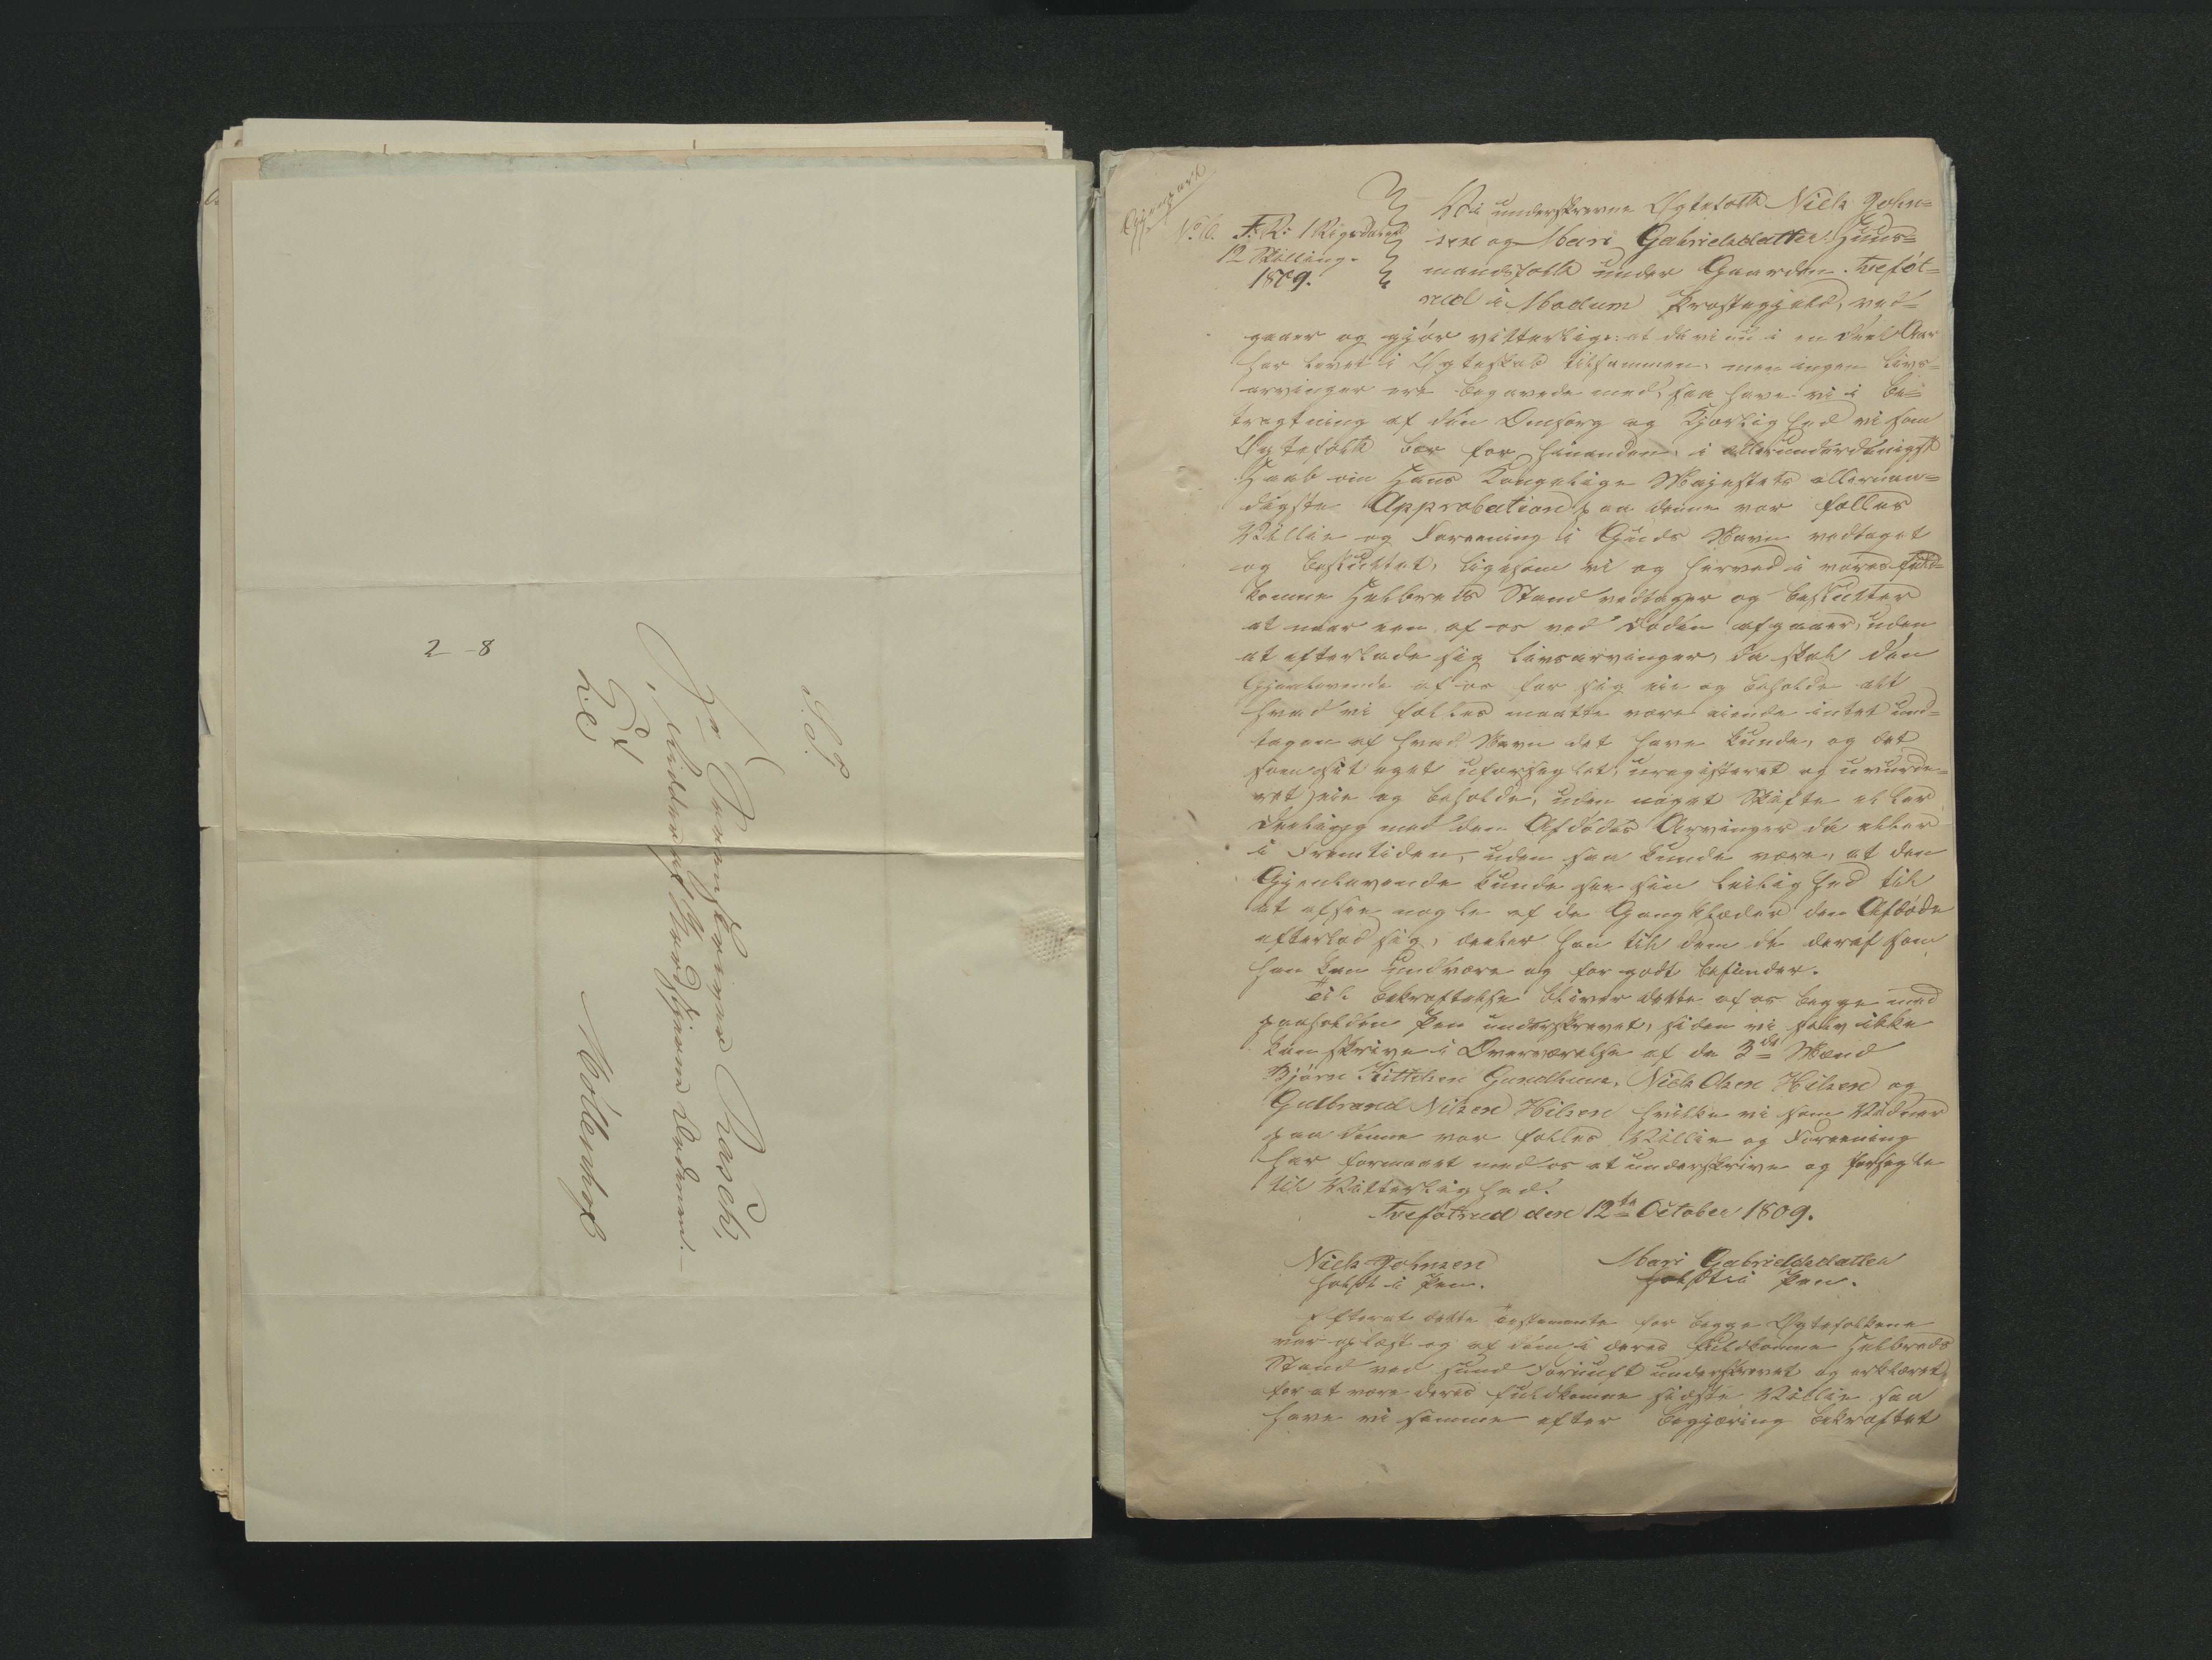 S. T.
Hr Sorenskriver Rasch,
Ridder af Nordstjerne Ordenen.
Möllenhof
2-8
Gjenpart
No 6. F: R: 1 Rigsdaler
12 Skilling.
1809.
Vi underskrevne Egtefolk Niels John=
sen og Mari Gabrielsdatter Huus=
mandsfolk under Gaarden Trefót=
rud i Modum Præstegjeld, ved=
gaaer og gjör vitterlig: at da vi nu i en Deel Aar
har levet i Egteskab tilsammen, men ingen Livs=
arvinger ere begavede med, saa have vi i be=
tragtning af den Omsorg og Kjerlighed vi som
Egtefolk bær for hinanden, i allerunderdanigst
Haab om Hans Kongelige Majestets allernaa=
digste Approbation paa denne vor fælles
Villie og Foreening i Guds Navn vedtaget
og besluttet, ligesom vi og herved i vores fuld=
komne Helbreds Stand vedtager og beslutter
at naar een af os ved Döden afgaaer, uden
at efterlade sig Livsarvinger, da skal den
Gjenlevende af os for sig eie og beholde alt
hvad vi fælles maatte være eiende intet und=
tagen af hvad Navn det have kunde, og det
som sit eget uforseglet, uregisteret og uvurde=
ret eie og beholde, uden noget Skifte eller
Deeling med den Afdödes Arvinger da eller
i Fremtiden, uden saa kunde være, at den
Gjenlevende kunde see sin Leilighed til
at afsee nogle af de Gangklæder den Afdöde
efterlod sig, deeler han til dem de deraf som
han kan undvære og for godt befinder.
Til Bekræftelse bliver dette af os begge med
paaholden Pen underskrevet, siden vi selv ikke
kan skrive i Overværelse af de 3de Mænd
Björn Kittelsen Gundhuus, Niels Olsen Hilsen og
Gulbrand Nilsen Hilsen hvilke vi som Vidner
paa denne vor fælles Villie og Foreening
har formaaet med os at underskrive og forsegle
til Vitterlighed.
Trefótrud den 12te October 1809.
Niels Johnsen
holdt i Pen.
Mari Gabrielsdatter
holdt i Pen.
Efterat dette Testamente for begge Egtefolkene
var oplæst og af dem i deres fuldkomne Helbreds
Stand ved sund Fornuft underskrevet og erklæret
for at være deres fuldkomne sidste Villie saa
have vi samme efter Begjæring bekræftet